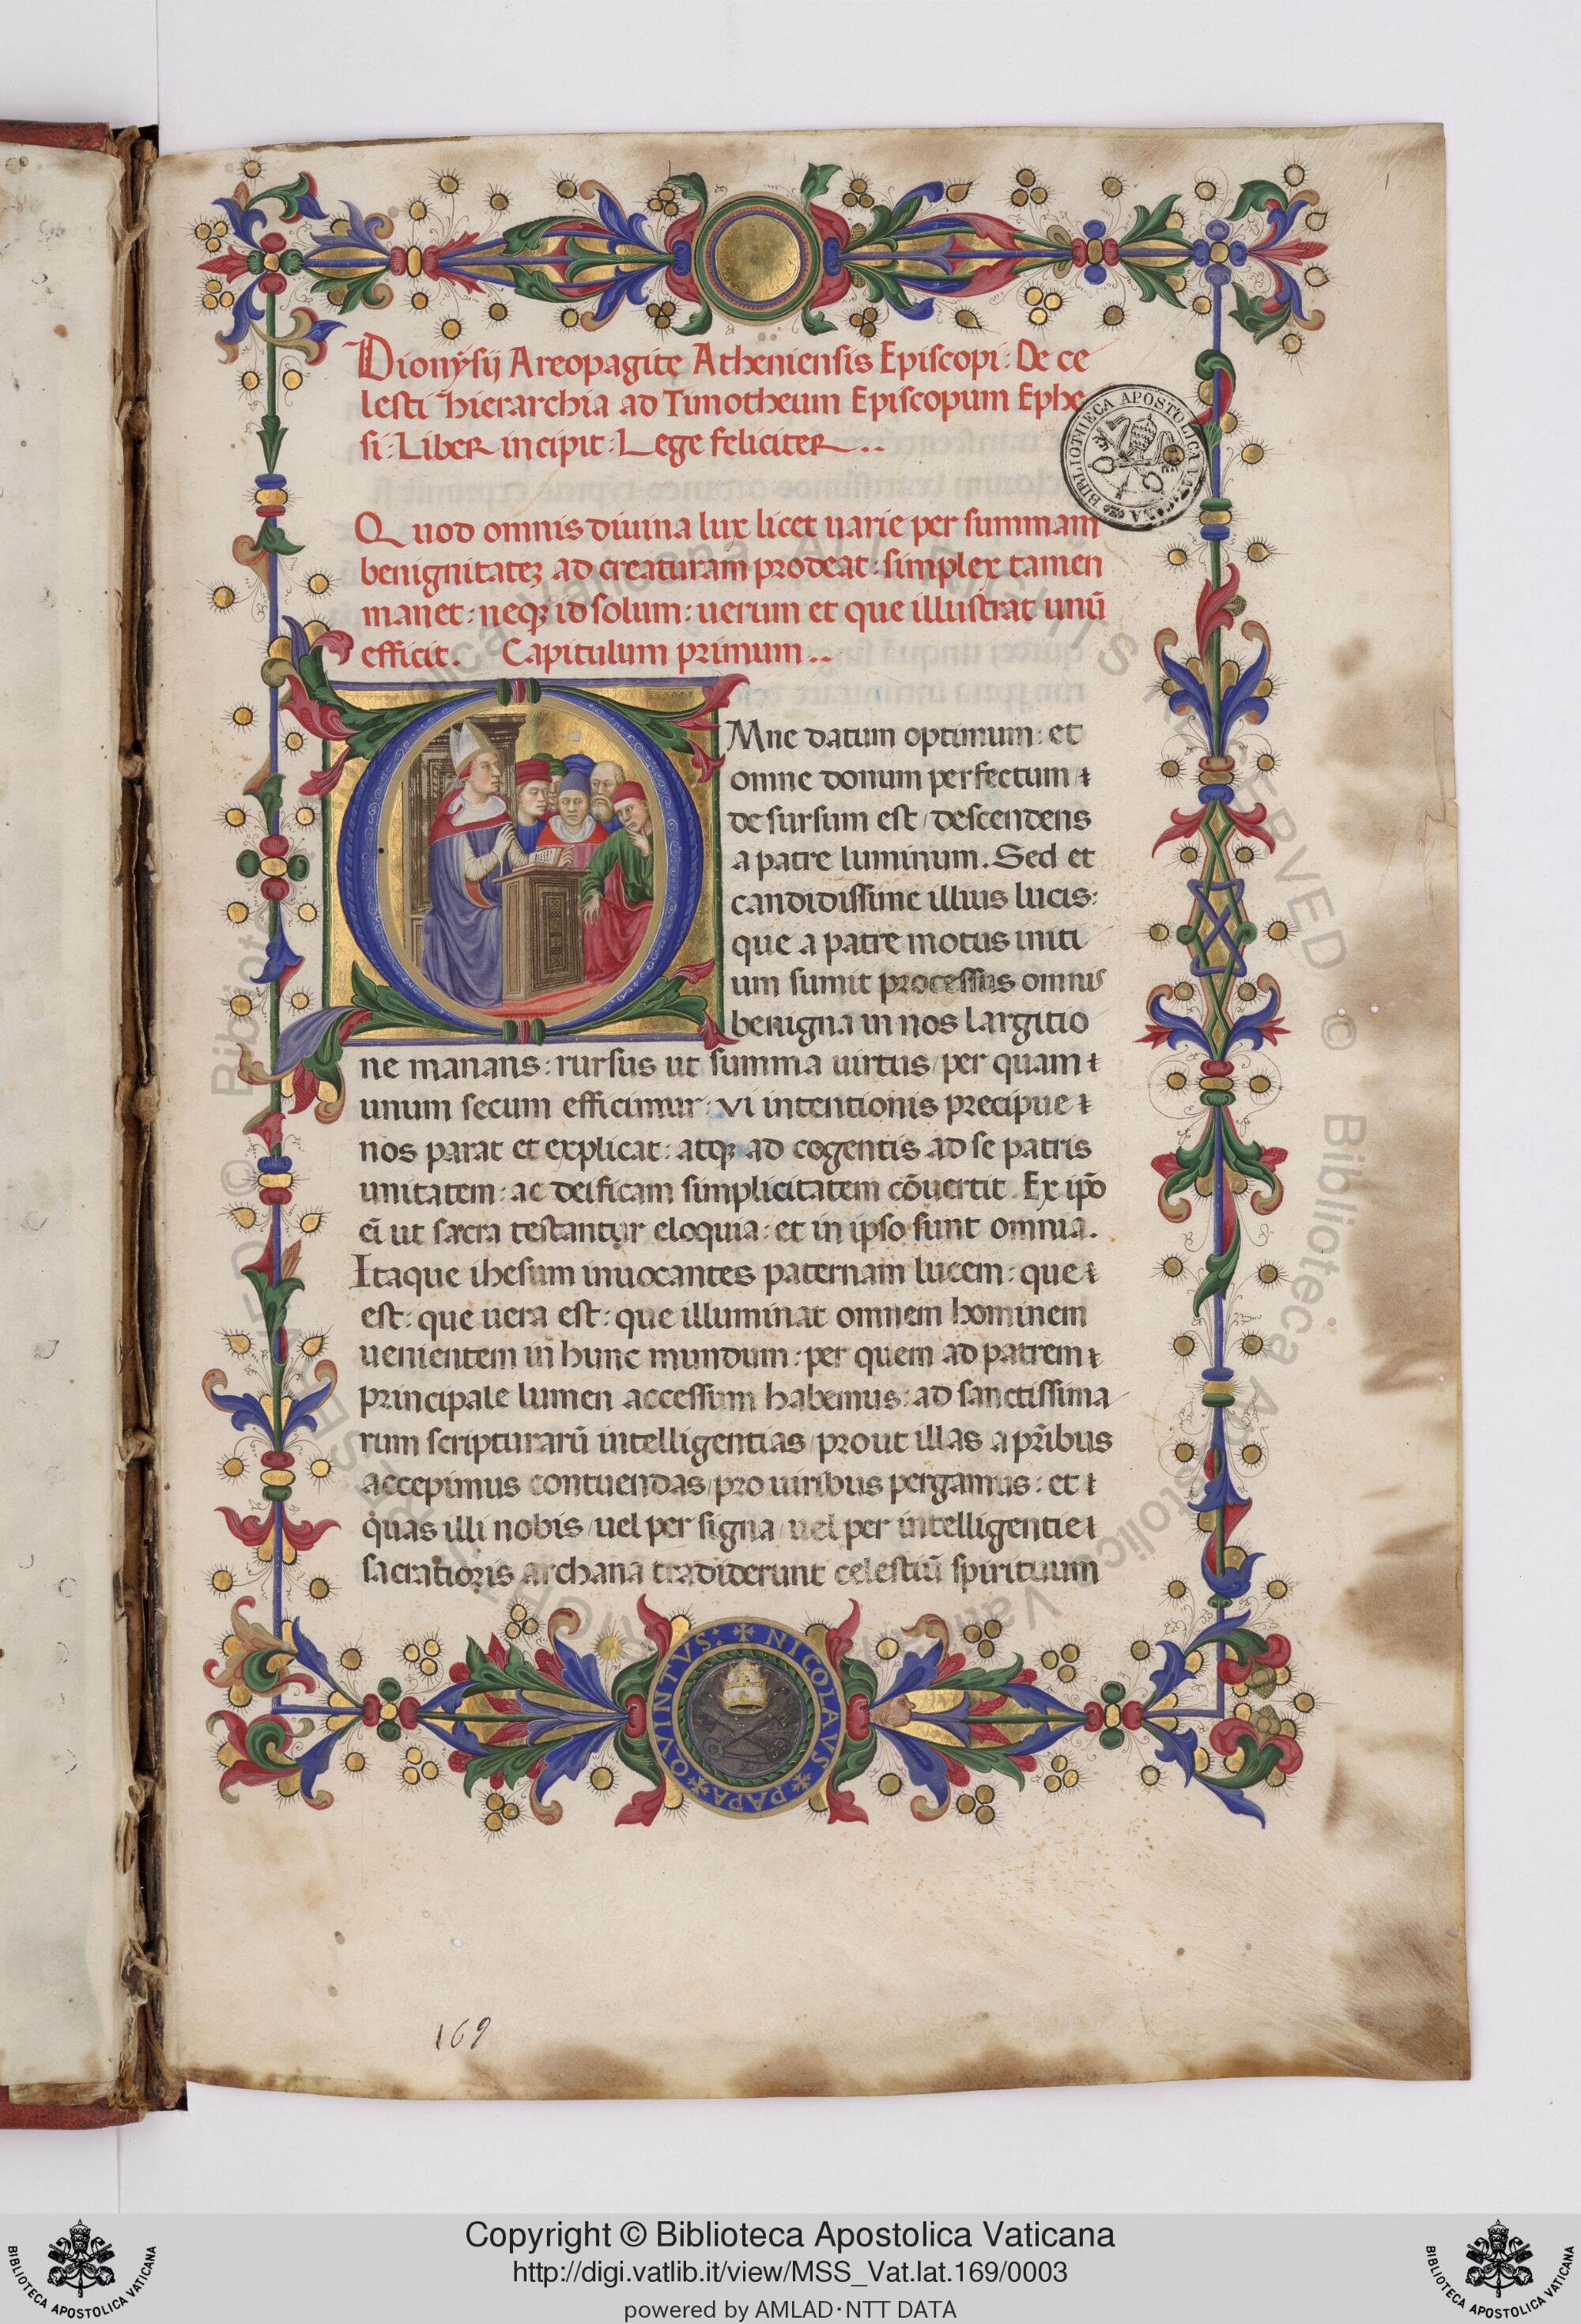 1
Dionysij Areopagite Atheniensis Episcopi: De ce
lesti hierarchia ad Timotheum Episcopum Ephe
si: Liber incipit: Lege feliciter..
BIBLIOTHECA APOSTOLICA VATICANA
Quod omnis diuina lux licet uarie per summam
benignitateꝫ ad creaturam prodeat: simplex tamen
manet: neqꝫ id solum: uerum et que illustrat unū
efficit. Capitulum primum..
OMne datum optimum: et
omne donum perfectum
de sursum est/ descendens
a patre luminum. Sed et
candidissime illius lucis:
que a patre motus initi
um sumit processus omnis
benigna in nos largitio
ne manans: rursus ut summa uirtus/ per quam
unum secum efficimur: vi intentionis precipue
nos parat et explicat: atqꝫ ad cogentis ad se patris
unitatem: ac deificam simplicitatem cōuertit. Ex ip̄o
ei̅ ut sacra testantur eloquia: et in ipso sunt omnia.
Itaque ihesum inuocantes paternam lucem: que
est: que uera est: que illuminat omnem hominem
uenientem in hunc mundum: per quem ad patrem
principale lumen accessum habemus: ad sanctissima
rum scripturarū intelligentias/ prout illas a pr̄ibus
accepimus contuendas/ pro uiribus pergamus: et
quas illi nobis/ uel per signa/ uel per intelligentie
sacratioris archana tradiderunt celestiū spirituum
NICOLAVS PAPA QVINTVS:
169
Copyright © Biblioteca Apostolica Vaticana
http://digi.vatlib.it/view/MSS_Vat.lat.169/0003
powered by AMLAD·NTT DATA
BIBLIOTECA APOSTOLICA VATICANA
BIBLIOTECA APOSTOLICA VATICANA